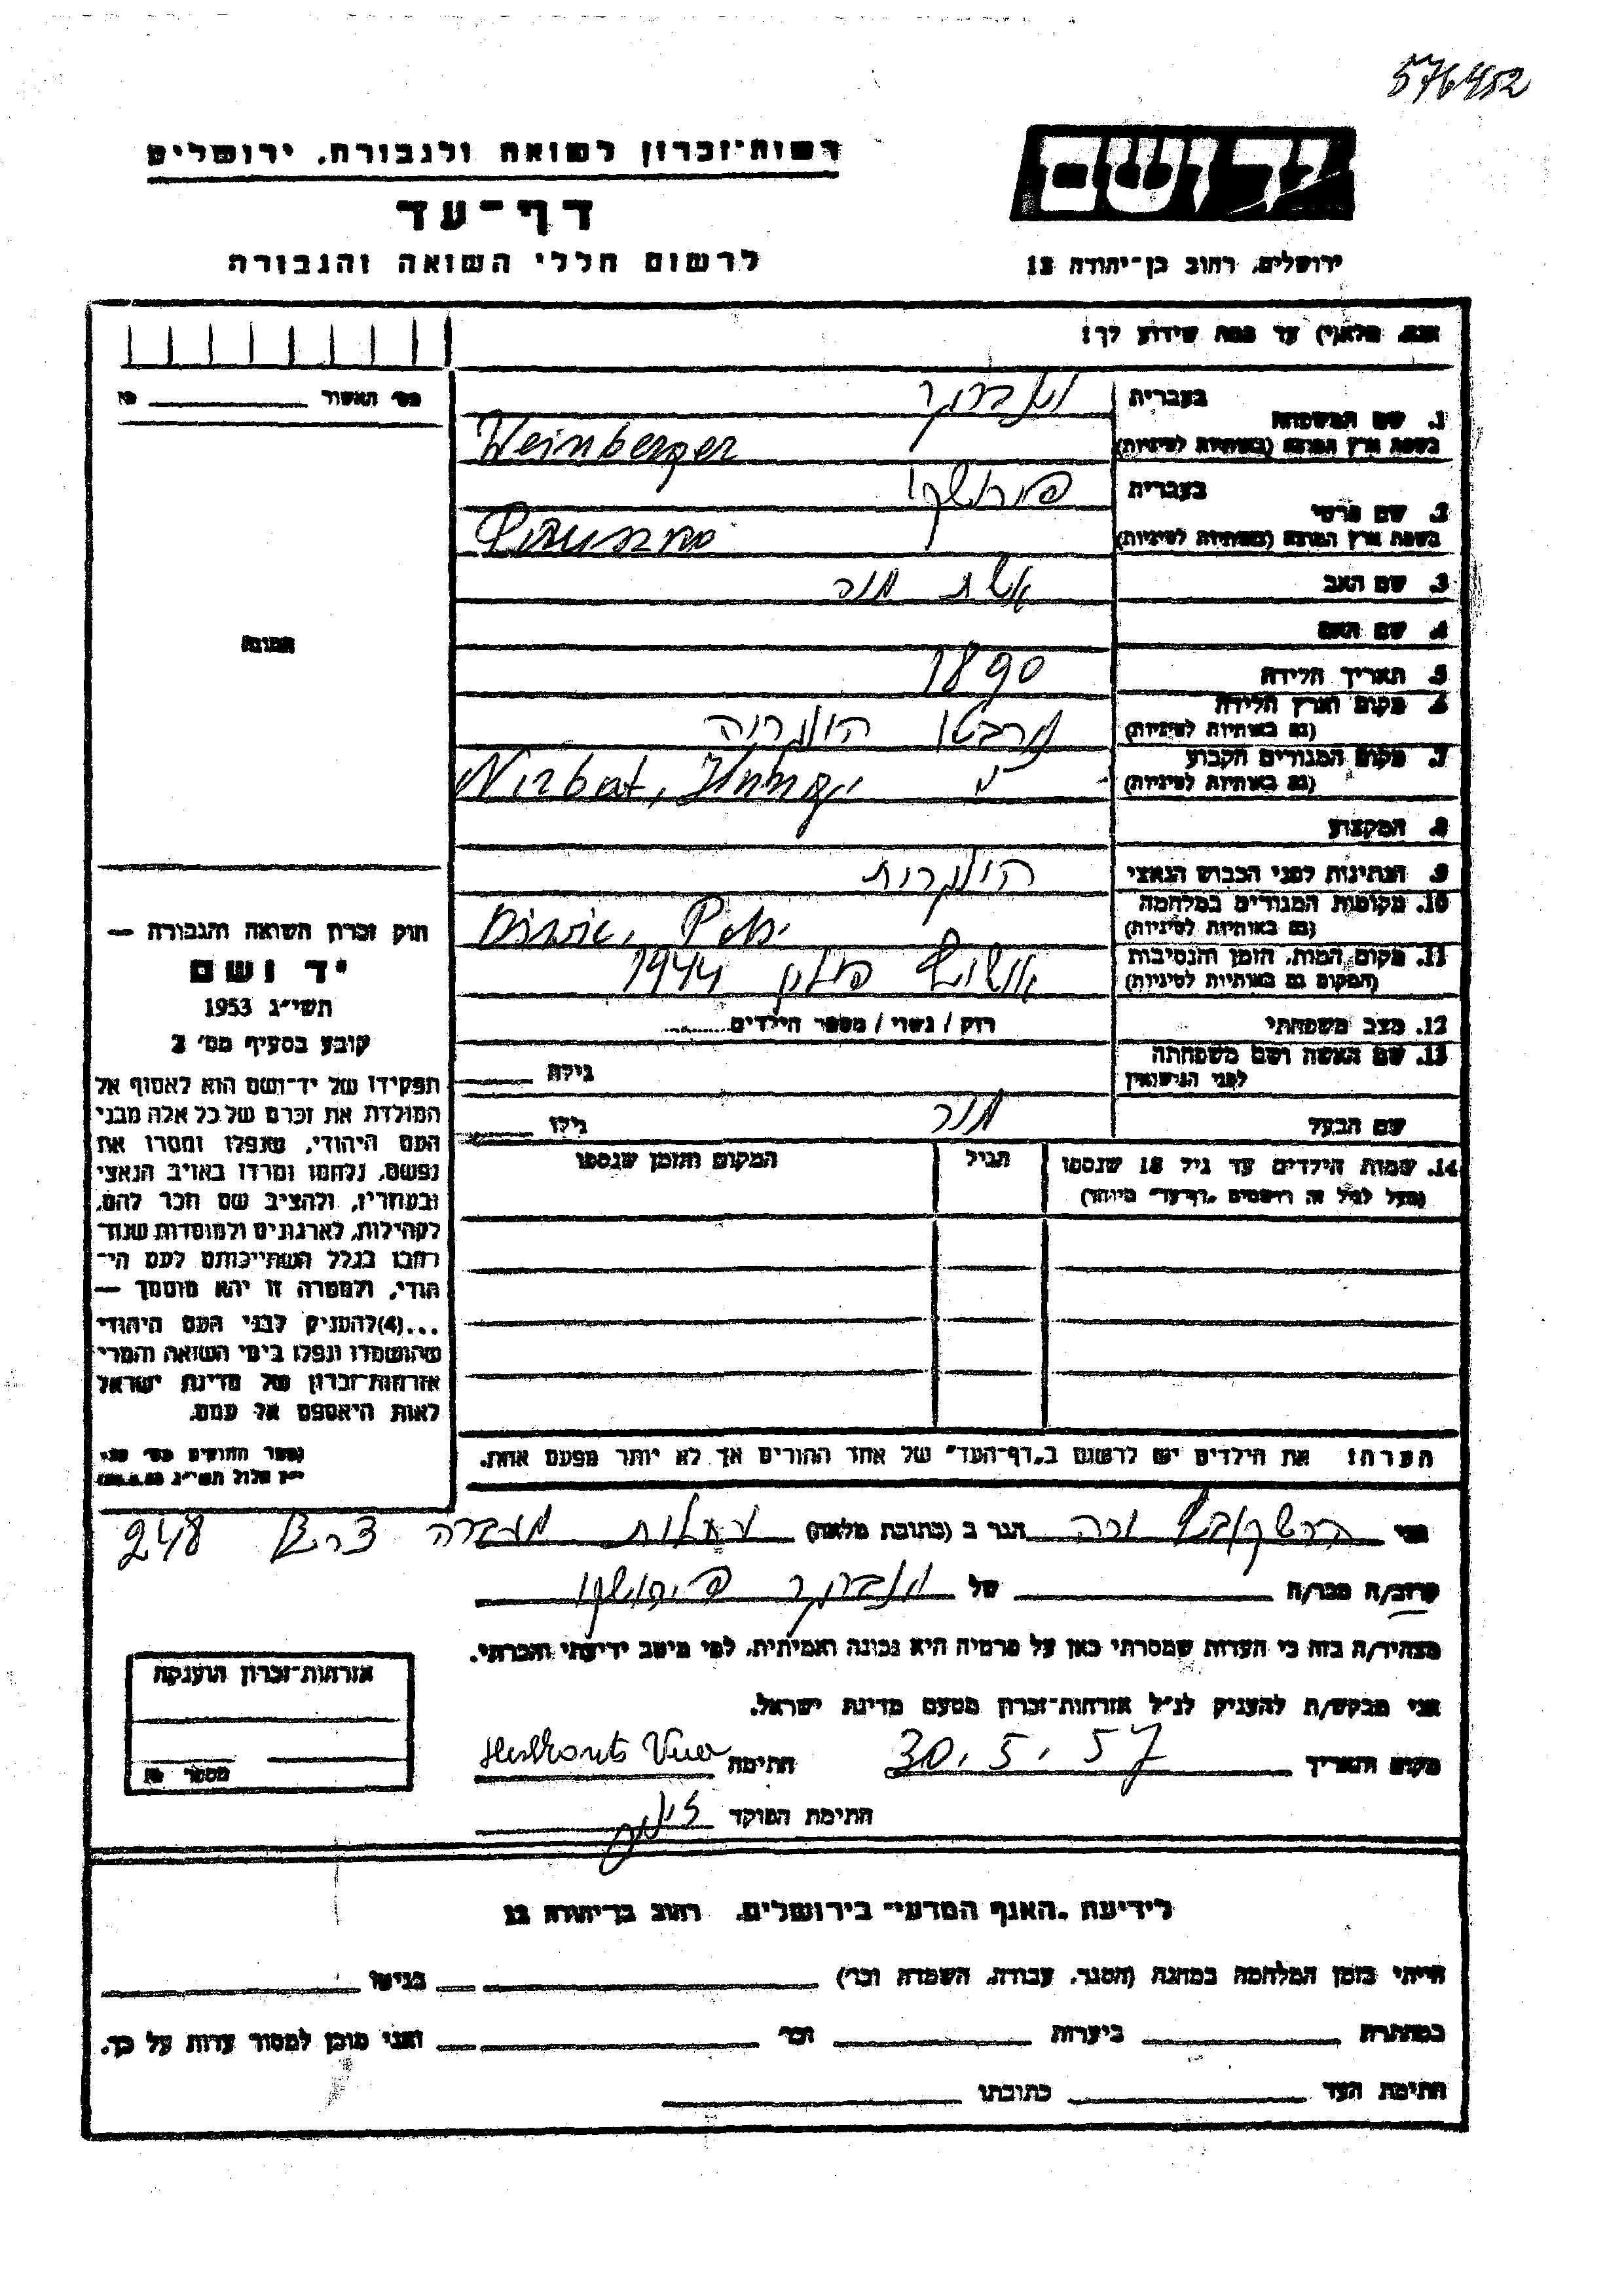 576452
רשות־זכרון לשואה ולגבורה, ירושלים
דף־עד
לרשום חללי השואה והגבורה
יד ושם
ירושלים, רחוב בן־יהודה 12
אנא, מלא(י) עד כמה שידוע לך!
מס׳ האשור
תמונה
1. שם המשפחה
בעברית
בשפת ארץ המוצא (באותיות לטיניות)
Weinberger
2. שם פרטי
בעברית פירושקו
בשפת ארץ המוצא (באותיות לטיניות)
3. שם האב אשת
4. שם האם
5. תאריך הלידה 1890
6. מקום וארץ הלידה
(גם באותיות לטיניות)
הונגריה
7. מקום המגורים הקבוע
(גם באותיות לטיניות)
Nirbat,
8. המקצוע
9. הנתינות לפני הכבוש הנאצי הונגרית
10. מקומות המגורים במלחמה
(גם באותיות לטיניות)
11. מקום המות, הזמן והנסיבות
(המקום גם באותיות לטיניות)
אושויץ פולין 1944
12. מצב משפחתי רוק / נשוי / מספר הילדים
13. שם האשה ושם משפחתה
לפני הנישואין
גילה
שם הבעל
גילו
14. שמות הילדים עד גיל 18 שנספו
(מעל לגיל זה רושמים „דף־עד״ מיוחד)
הגיל
המקום והזמן שנספו
הערה: את הילדים יש לרשום ב„דף־העד״ של אחד ההורים אך לא יותר מפעם אחת.
חוק זכרון השואה והגבורה —
יד ושם
תשי״ג 1953
קובע בסעיף מס׳ 2
תפקידו של יד־ושם הוא לאסוף אל
המולדת את זכרם של כל אלה מבני
העם היהודי, שנפלו ומסרו את
נפשם, נלחמו ומרדו באויב הנאצי
ובעוזריו, ולהציב שם וזכר להם,
לקהילות, לארגונים ולמוסדות שנח־
רבו בגלל השתייכותם לעם הי־
הודי, ולמטרה זו יהא מוסמך —
...(4) להעניק לבני העם היהודי
שהושמדו ונפלו בימי השואה והמרי
אזרחות־זכרון של מדינת ישראל
לאות היאספם אל עמם.
(ספר החוקים מס׳
י״ז אלול תשי״ג
אני ורה הגר ב (כתובת מלאה) מעברה צריף 248
קרוב/ה מכר/ה של פירושקו
מצהיר/ה בזה כי העדות שמסרתי כאן על פרטיה היא נכונה ואמיתית, לפי מיטב ידיעתי והכרתי.
אני מבקש/ת להעניק לנ״ל אזרחות־זכרון מטעם מדינת ישראל.
מקום ותאריך 30.5.57 חתימה
חתימת הפוקד
אזרחות־זכרון הוענקה
מספר
לידיעת „האגף המדעי״ בירושלים, רחוב בן־יהודה 12
הייתי בזמן המלחמה במחנה (הסגר, עבודה, השמדה וכו׳) בגיטו
במחתרת ביערות וכו׳ ואני מוכן למסור עדות על כך.
חתימת העד כתובתו